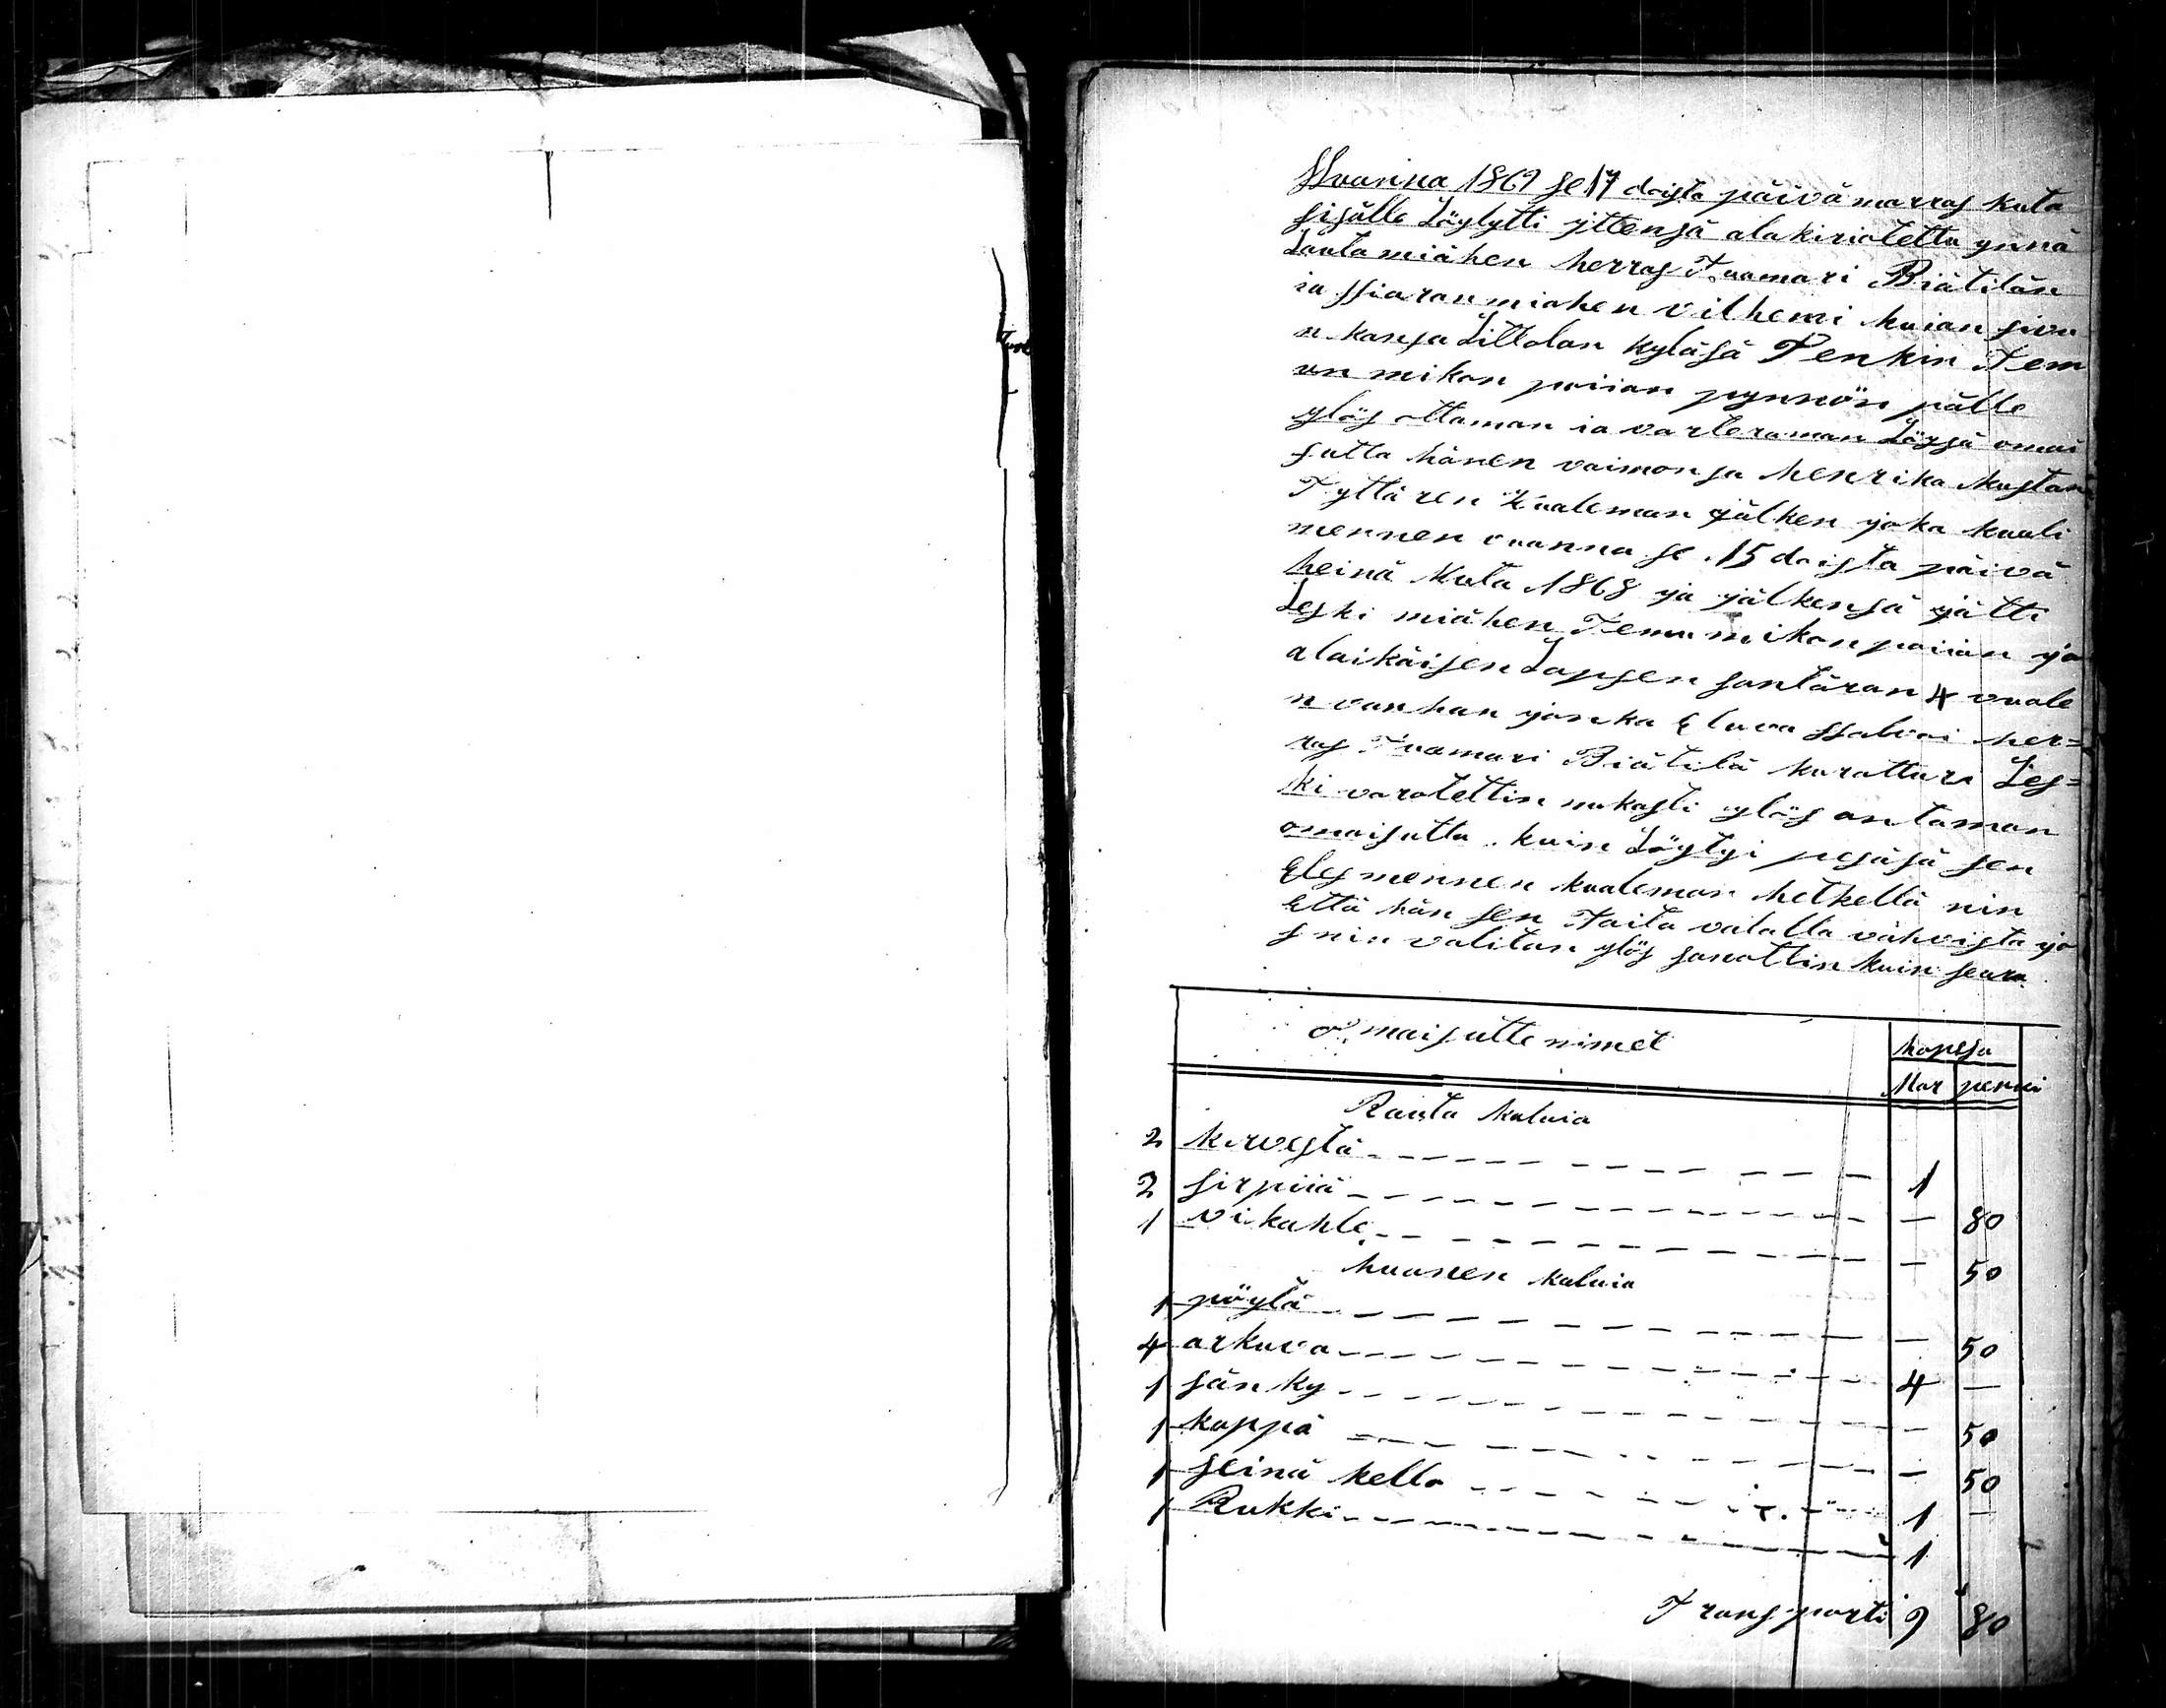 Wuanna 1869 se 17 doista päivä marras kuta
sisälle Löylytti ittensä alakiriotettu ynnä
Lautamiähen herras Tuamari Biätilän
ia ssiaranmiahen vilhemi kuian sivu
n kansa Littolan kyläsä Penkin Tem
un mikon poiian pynnön pälle
ylös ottaman ia varteraman Löysä omai
sutta hänen vaimonsa henrika kustan
Tyttären kualeman jälken joka kuali
mennen vuanna se 15 doista päivä
heinä kuta 1868 ja jälkensä jätti
Leski miähen Temu mikon poiian ja
alaikäisen Lapsen santäran 4 vuale
n vanhan jonka Eluva ssalvoi her=
ras Tuamari Biätilä kuratturi Les=
ki varotettin nukasti ylös antaman
omaisutta kuin Löytyi pesäsä sen
Eles mennen kualeman hetkellä nin
Että hän sen Taita valalla vahvista ja
s nin valitan ylös sanottin kuin seura
omaisutte nimet
hopesa
Mar penni
Rauta kaluia
2 kirvestä - - - 1
2 sirpiiä - - - — 80
1 vikahle - - - — 50
huonen kaluia
1 pöylä - - - — 50
4 arkuva - - - 4 —
1 sänky - - - — 50
1 kappa - - - — 50
1 seinä kello - - - 1 —
1 Rukki - - - 1
Transporti 9 80